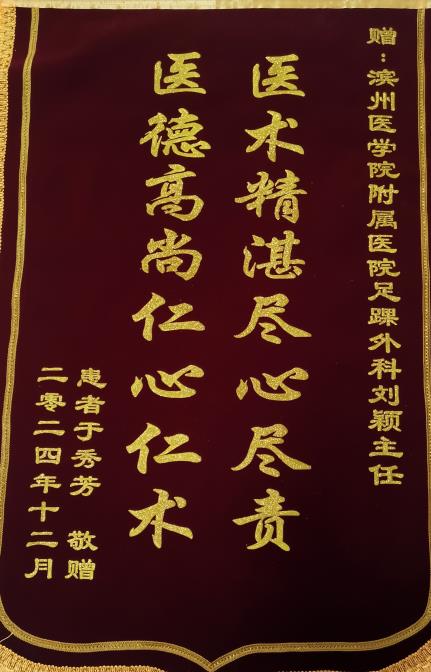 赠：滨州医学院附属医院足踝外科刘颖主任
医术精湛尽心尽责
医德高尚仁心仁术
患者于秀芳 敬赠
二零二四年十二月